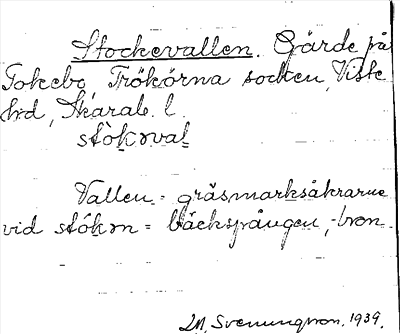 Stockevallen. Gärde på
Tokebo, Trökörna socken, Viste
hd, Skarab. l.
stòkəval
Vallen = gräsmarksåkrarne
vid stókən = bäckspången, -bron.
M. Svenungsson. 1939.